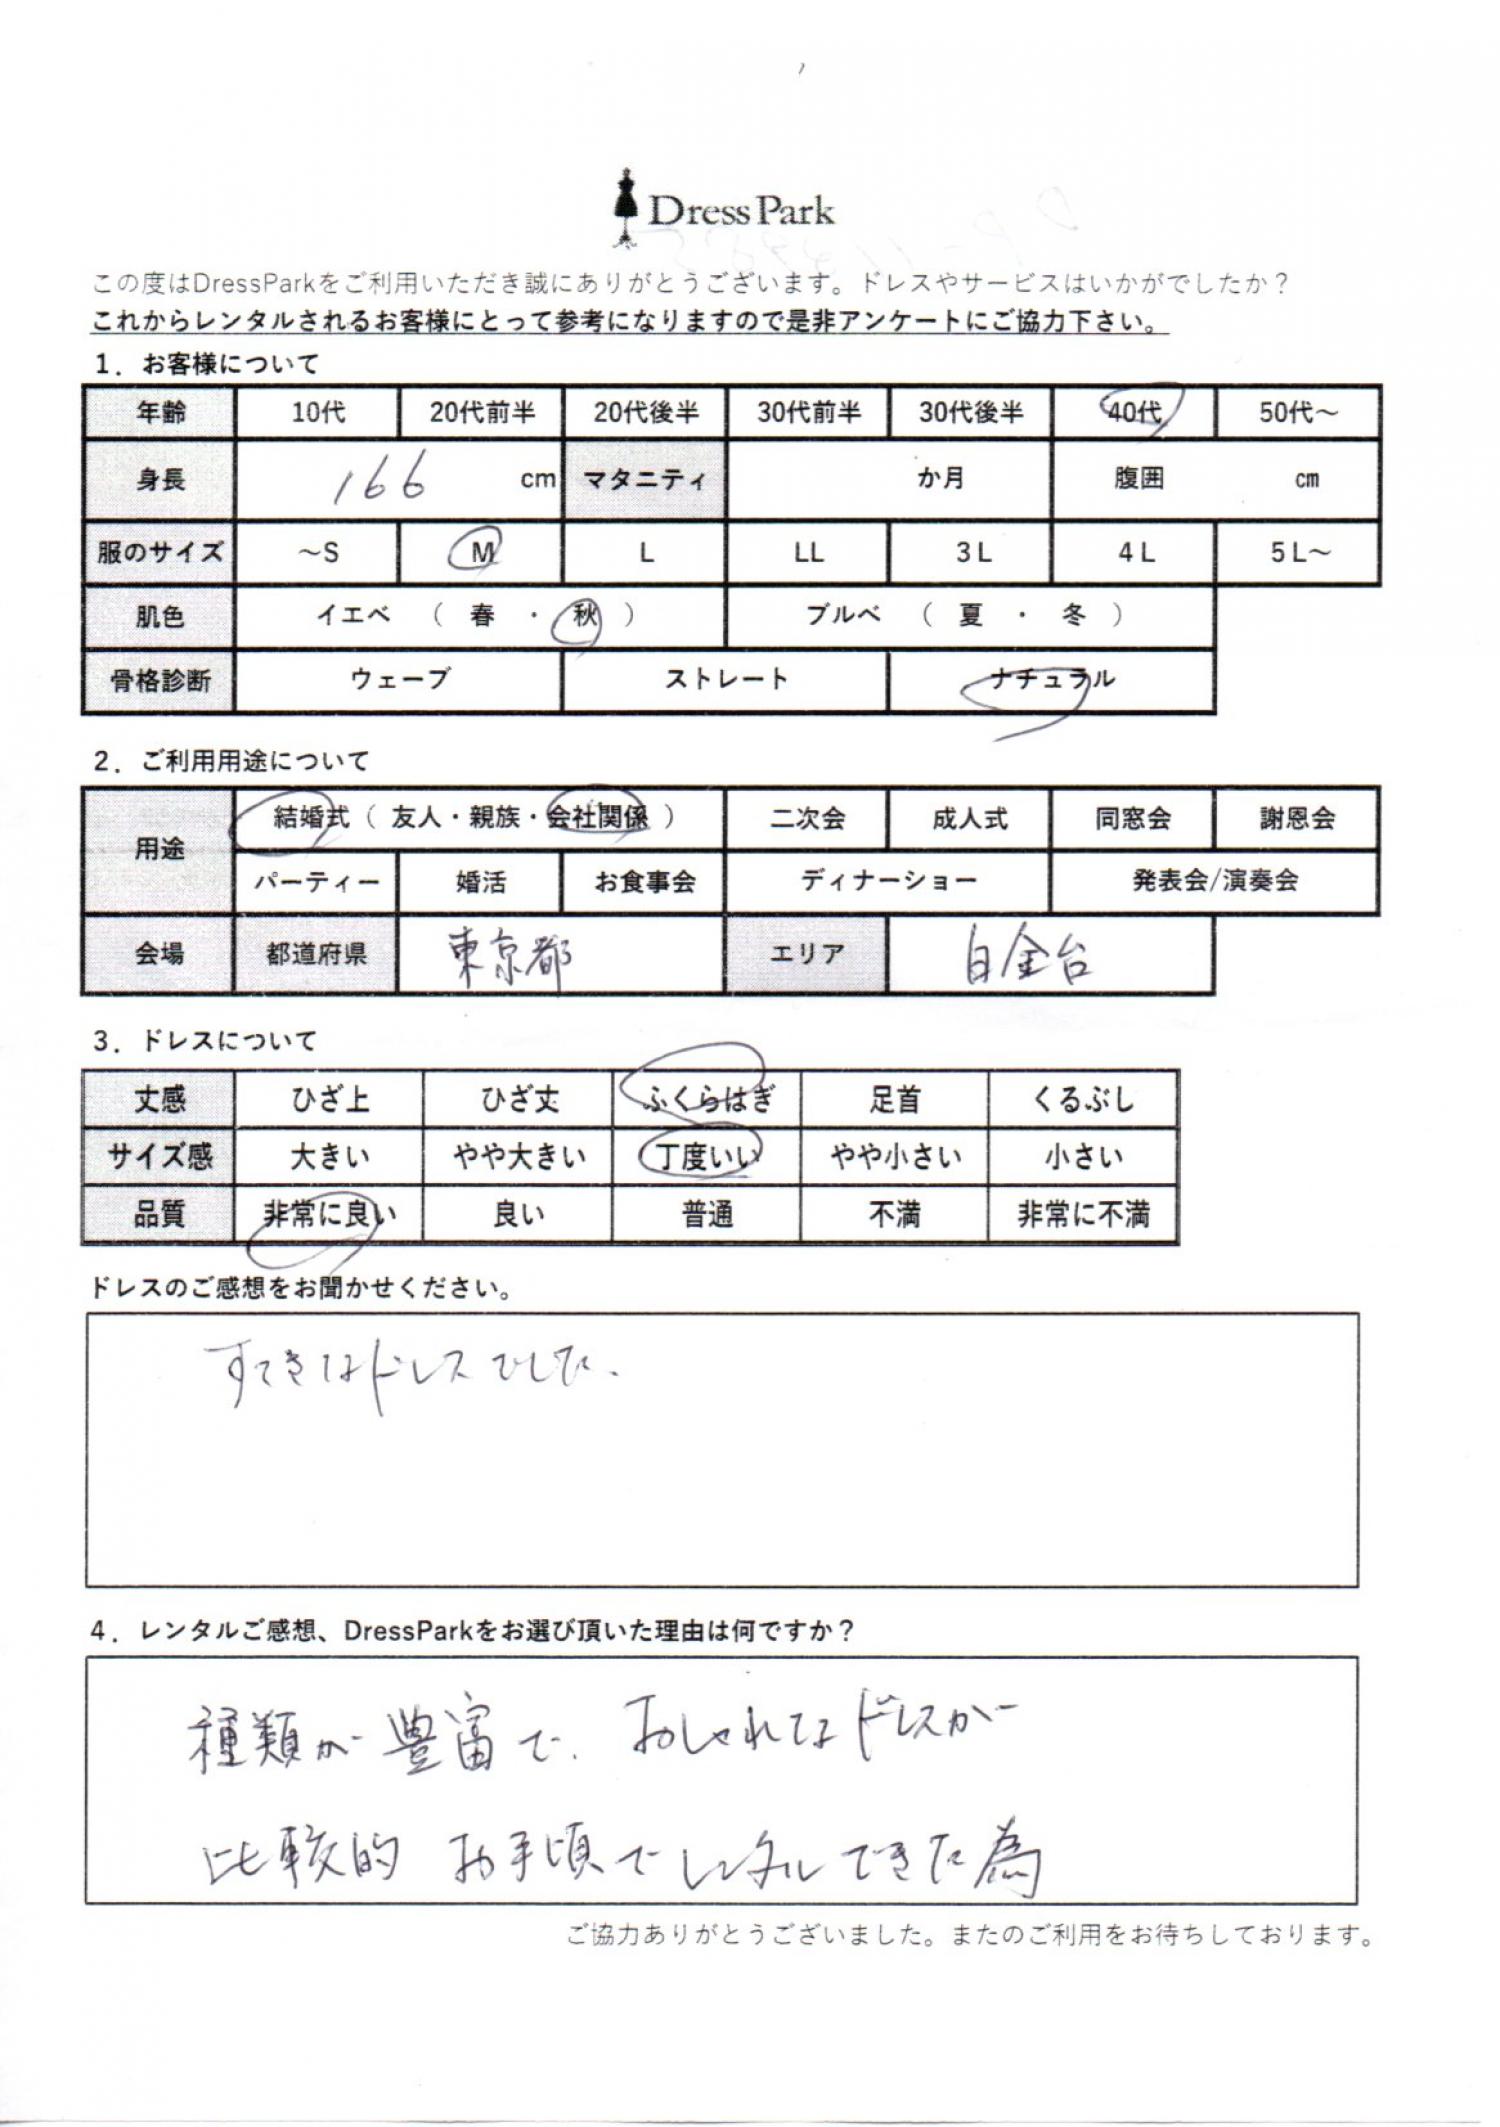 Dress Park
この度はDressParkをご利用いただき誠にありがとうございます。ドレスやサービスはいかがでしたか？
これからレンタルされるお客様にとって参考になりますので是非アンケートにご協力下さい。
1．お客様について
年齢 10代 20代前半 20代後半 30代前半 30代後半 40代 50代～
身長 166 cm マタニティ か月 腹囲 cm
服のサイズ ～S M L LL 3L 4L 5L～
肌色 イエベ （ 春 ・ 秋 ） ブルベ （ 夏 ・ 冬 ）
骨格診断 ウェーブ ストレート ナチュラル
2．ご利用用途について
用途 結婚式（ 友人・親族・会社関係 ） 二次会 成人式 同窓会 謝恩会
パーティー 婚活 お食事会 ディナーショー 発表会/演奏会
会場 都道府県 東京都 エリア 白金台
3．ドレスについて
丈感 ひざ上 ひざ丈 ふくらはぎ 足首 くるぶし
サイズ感 大きい やや大きい 丁度いい やや小さい 小さい
品質 非常に良い 良い 普通 不満 非常に不満
ドレスのご感想をお聞かせください。
すてきなドレスでした.
4．レンタルご感想、DressParkをお選び頂いた理由は何ですか？
種類が豊富で、おしゃれなドレスが
比較的 お手頃でレンタルできた為
ご協力ありがとうございました。またのご利用をお待ちしております。